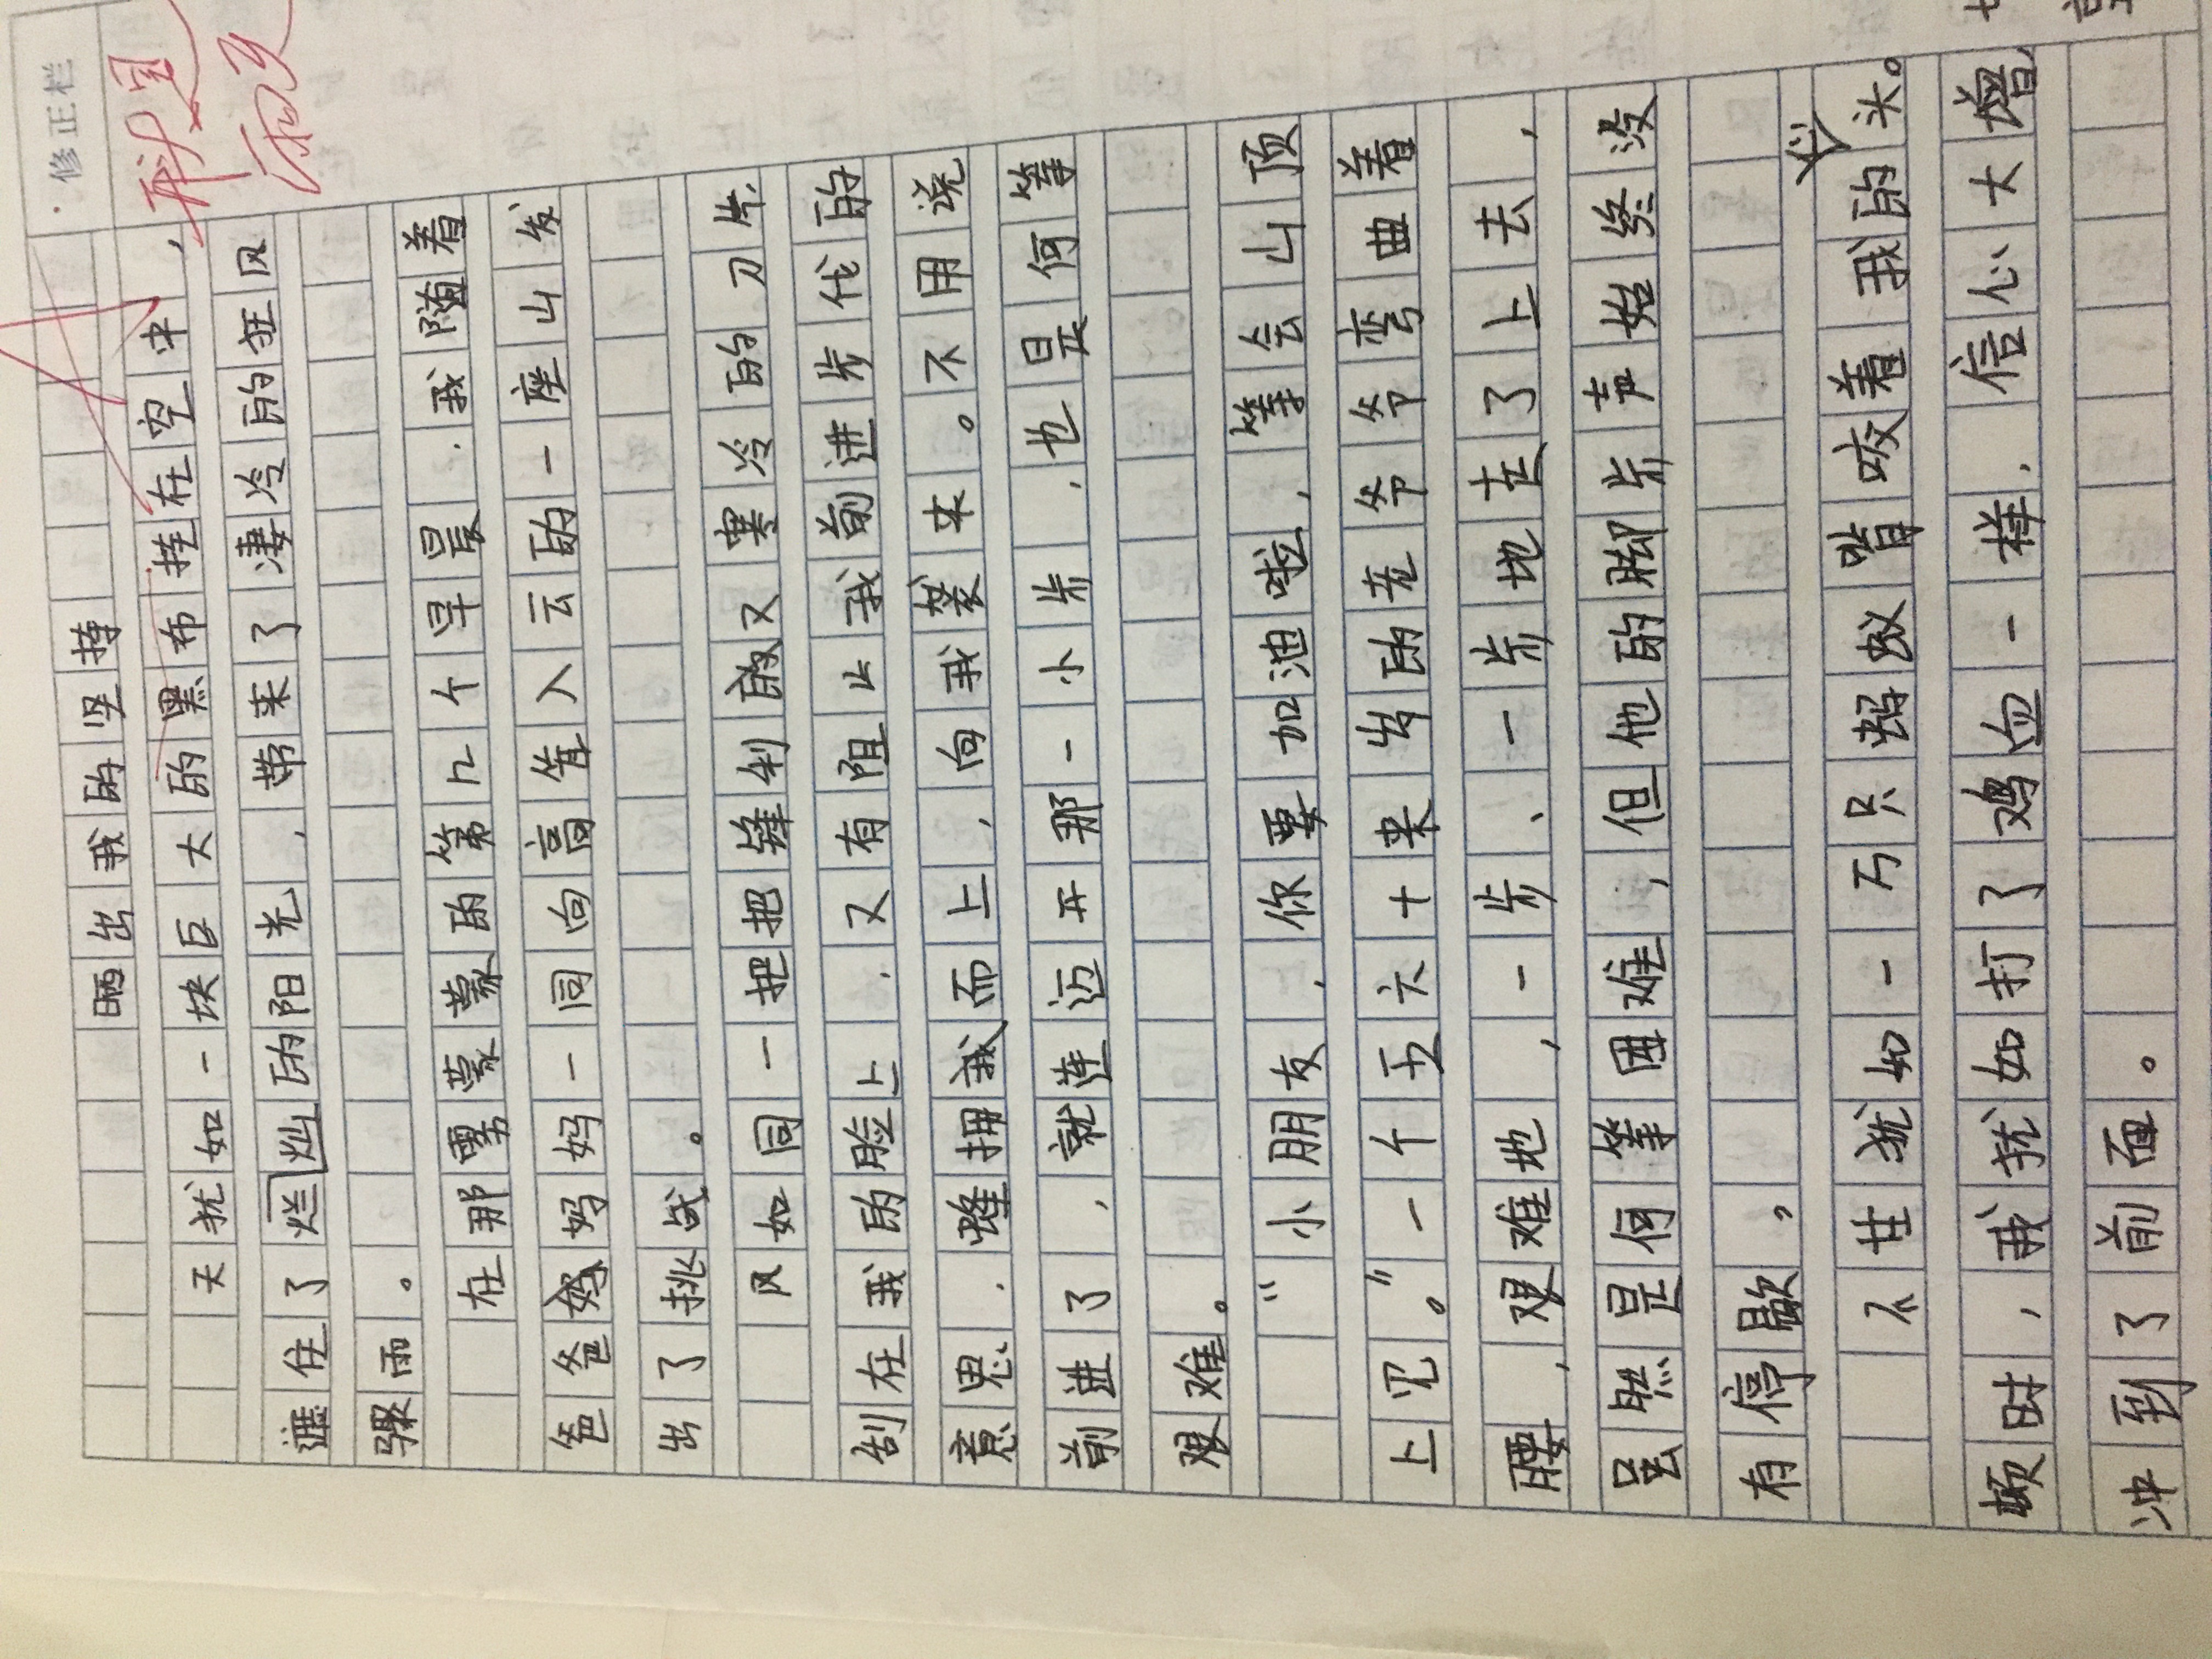 ·修正栏
晒出我的坚持
天犹如一块巨大的黑布挂在空中，
遮住了烂灿的阳光，带来了凄冷的狂风
骤雨。
在那雾蒙蒙的第几个早晨，我随着
爸爸妈妈一同向高耸入云的一座山发
出了挑战。
风如同一把把锋利的又寒冷的刀片
刮在我的脸上，又有阻止我前进步伐的
意思，蜂拥我而上，向我袭来。不用说
前进了，就连迈开那一小步，也是何等
艰难。
“小朋友，你要加油啦，等会山顶
上见。”一个五六十来岁的老爷爷弯曲着
腰，艰难地，一步、一步地走了上去，
虽然是何等困难，但他的脚步声始终没
有停歇，
不甘犹如一万只蚂蚁啃咬着我的心头。
顿时，我犹如打了鸡血一样，信心大增
冲到了前面。